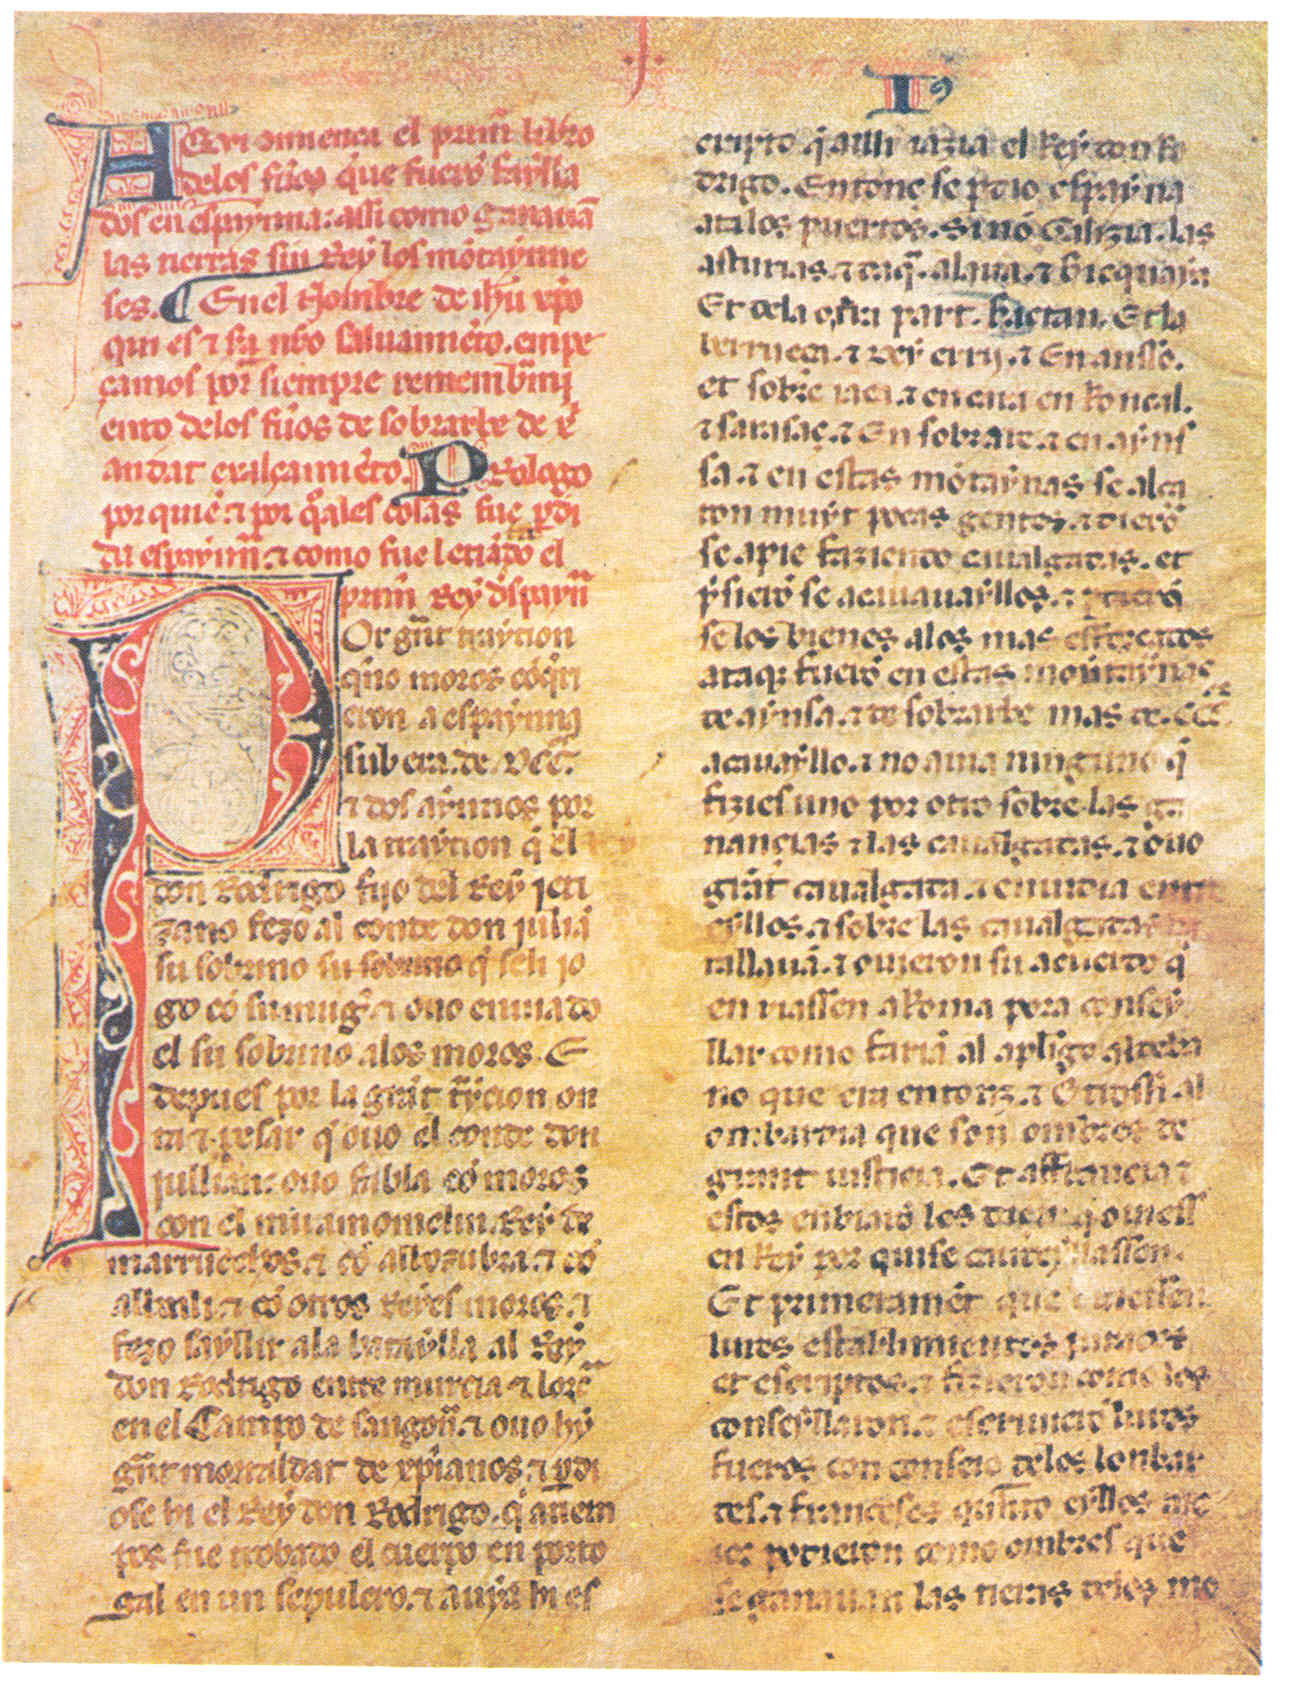 AQui comienca el prim̃ libro
delos fu̾os que fuerõ faylla
dos en espaynna: assi como ganauã
las tierras sin Rey los mõtaynne
ses. ¶ En el Nombre de ihũ xp̃o
qui es ⁊ sa nr̃o saluamiẽto. empe
çamos por siempre remembrãmj
ento delos fu̾os de sobrarbe de xp̃i
andat exalçamiẽto. PRologo
por quiẽ ⁊ por q̃ales cosas fue p̱di
da espaynna. ⁊ como fue leuãtado el
prim̃ Rey despaynna
POr grãt trayction
quño moros cõq̃ri
eron a espaynna
sub era. de. VCC.
⁊ dos aynnos por
la trayction q̃ el Rey
don Rodrigo fijo del Rey jeti
zano fezo al conde don julia
su sobrino su sobrino q̃ seli jo
go cõ su mug̃. ⁊ ouo enuiado
el su sobrino alos moros. E
depues por la grãt tr̃ycion on
ta ⁊ pesar q̃ ouo el conde don
jullian: ouo fabla cõ moros
con el miramomelin. Rey de
marruechos. ⁊ cõ albozubra. ⁊ cõ
alimli ⁊ cõ otros Reyes moros. ⁊
fezo sayllir ala bataylla al Rey
don Rodrigo entre murcia ⁊ lorc̃
en el Campo de sangon̾a. ⁊ ouo hy
grãt mortaldat de xp̃ianos. ⁊ p̱di
ose hi el Rey don Rodrigo. q̃ a tiem
pos fue trobado el cuerpo en porto
gal en un sepulcro. ⁊ auya hi es
I
cripto q̃ alli iazia el Rey don Ro
drigo. Entonç se p̱dio espayna
ata los puertos. sinõ Galizia. las
asturias. ⁊ daq̃. alaua. ⁊ bizquaya
Et dela otra part. baztan. Et la
berrueça. ⁊ Dey erry. ⁊ En anssõ.
et sobre iaca. ⁊ encara en Roncal.
⁊ sarasaç. ⁊ En sobrarue. ⁊ en ayns
sa. ⁊ en estas mõtaynas se alça
ron muyt pocas gentes. ⁊ dierõ
se apie faziendo caualgadas. et
p̱sierõ se acauayllos. ⁊ partierõ
se los bienes alos mas esforçados
ataq̃ fuerõ en estas montaynas
de aynsa. ⁊ de sobrarbe mas de. CCC.
acauayllo. ⁊ no auia ninguno q̃
fizies uno por otro sobre las ga
nançias ⁊ las caualgadas. ⁊ ouo
grãt caualgada. ⁊ enuidia entre
eyllos. ⁊ sobre las caualgadas ba
rallauã. ⁊ ouieron su acuerdo q̃
en viassen a Roma pora consey
llar como farian al apligo aldeba
no que era entonz. ⁊ Otrossi al
ombardia que son ombres de
grant iusticia. Et affrancia ⁊
estos enbiarõ les dizir q̃ ouiess
en Rey por quise caudeyllassen.
Et primeramẽt que ouiessen
lures establimientos jurados
et escriptos. ⁊ fizieron como los
conseyllaron. ⁊ escriuierõ lures
fueros con conseio delos lonbar
des. ⁊ franceses quãto eyllos me
ior podieron como ombres que
se ganauan las tierras delos mo